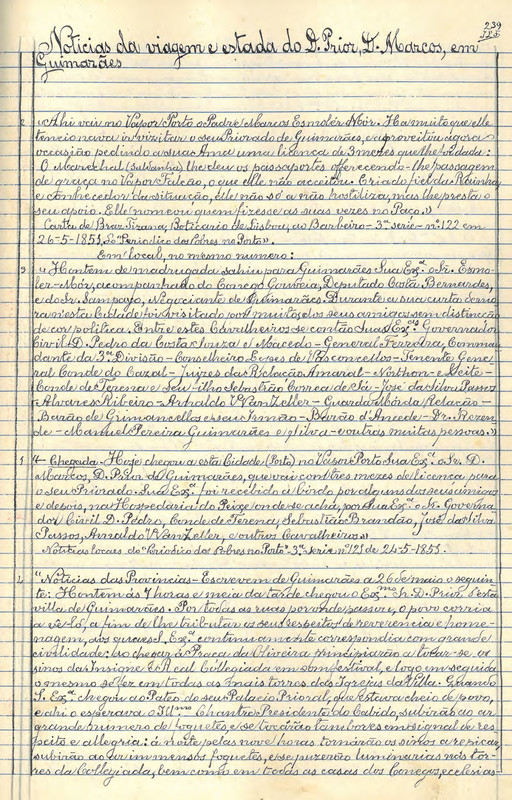 239
Noticias da viagem e estada do D. Prior, D. Marcos, em
Guimarães
2 «Ahi vai no Vapor Porto o Padre Marcos Esmoler Mór. Ha muito que elle
tencionava ir visitar o seu Priorado de Guimarães, e aproveitou agora
occasião pedindo a sua Ama uma licença de 3 mezes que lhe foi dada:
O Marechal (Saldanha) lhe deu os passaportes offerecendo-lhe passagem
de graça no Vapor Falcão, o que elle não acceitou. Criado fiel da Rainha
e conhecedor da situação, elle não só a não hostiliza, mas lhe presta o
seu apoio. Elle nomeou quem fizesse as suas vezes no Paço.»
Carta de Braz Tizana, Boticario de Lisboa, ao Barbeiro - 3ª serie - nº 122 em
26-5-1851. Do Periodico dos Pobres no Porto».
Em local, no mesmo numero:
3 «Hontem de madrugada sahiu para Guimarães Sua Exª o Sr. Esmo-
ler-Mór, acompanhado do Conego Gouveia, Deputado Costa Bernardes,
e do Sr. Sampayo, Negociante de Guimarães. Durante a sua curta demo
ra nesta Cidade foi visitado por muitos dos seus amigos sem distincção
de cor politica. Entre estes Cavalheiros se contão Suas Exªs Governador
Civil D. Pedro da Costa Souza e Macedo - General Ferreira, Comman
dante da 3ª Divisão - Conselheiro Lopes de Vasconcellos - Tenente Gene
ral Conde do Cazal - Juizes da Relação Amaral - Northon - e Leite -
Conde de Terena e Seu filho Sebastião Correa de Sá - José da Silva Passos
- Alvares Ribeiro - Arnaldo VanZeller - Guarda Mór da Relação -
Barão de Grimancellos e seu Irmão - Barão d'Ancede - Dr. Rezen
de - Manuel Pereira Guimarães e Silva - e outras muitas pessoas.»
Chegada - Hoje chegou a esta Cidade (Porto) no Vapor Porto Sua Exª o Sr. D.
Marcos, D. Prior de Guimarães, que vai com tres mezes de licença para
o seu Priorado. Sua Exª foi recebido a bordo por alguns dos seus amigos
e depois, na Hospedaria do Peixe onde se acha, por Sua Exª o Sr. Governa
dor Civil D. Pedro, Conde de Terena, Sebastião Brandão, José da Silva
Passos, Arnaldo VanZeller, e outros Cavalheiros»
Noticias locaes do "Periodico dos Pobres no Porto" 3ª serie nº 121 de 24-5-1851.
"Noticias das Provincias - Escrevem de Guimarães a 26 de maio o seguin
te: Hontem ás 7 horas e meia da tarde chegou o Exmo Sr. D. Prior d'esta
villa de Guimarães. Por todas as ruas por onde passou, o povo corria
a vê-lo, a fim de lhe tributar os seus respeitos de reverencia e home-
nagem, aos quaes S. Exª continuamente correspondia com grande
civilidade: ao chegar á Praça da Oliveira principiarão a tocar-se os
sinos da Insigne e Real Collegiada em som festival, e logo em seguida
o mesmo se fez em todas as mais torres das Igrejas da Villa. Quando
S. Exª chegou ao Pateo do seu Palacio Prioral, que estava cheio de povo,
e ahi o esperava o Illmo Chantre Presidente do Cabido, subirão ao ar
grande numero de foguetes, e se tocarão tambores em signal de res
peito e allegria: á noite pelas nove horas tornarão os sinos a repicar,
subirão ao ar immensos foguetes, e se puzerão luminarias nas tor
res da Collegiada, bem como em todas as casas dos Conegos, eclesias-